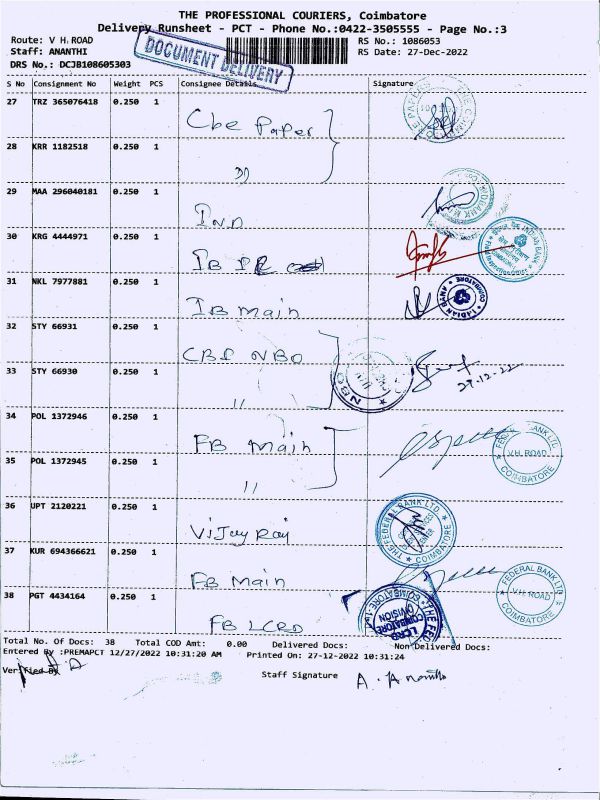 THE PROFESSIONAL COURIERS, Coimbatore
Delivery Runsheet - PCT - Phone No.:0422-3505555 - Page No.:3
Route: V H.ROAD
RS No.: 1086053
Staff: ANANTHI
RS Date: 27-Dec-2022
DRS No.: DCJB108605303
DOCUMENT DELIVERY
S No Consignment No Weight PCS Consignee Details Signature
27 TRZ 365076418 0.250 1 Cbe Paper
28 KRR 1182518 0.250 1 "
29 MAA 296040181 0.250 1 IND
30 KRG 4444971 0.250 1 IB
31 NKL 7977881 0.250 1 IB Main
32 STY 66931 0.250 1 CBI NBO
33 STY 66930 0.250 1 "
27-12-22
34 POL 1372946 0.250 1 FB Main
FEDERAL BANK LTD.
V.H. ROAD
COIMBATORE
35 POL 1372945 0.250 1 "
36 UPT 2120221 0.250 1 Vijay Raj
THE FEDERAL BANK LTD.
COIMBATORE
37 KUR 694366621 0.250 1 FB Main
FEDERAL BANK LTD.
V.H. ROAD
COIMBATORE
38 PGT 4434164 0.250 1 FB LCRD
LCRD
COIMBATORE
DIVISION
Total No. Of Docs: 38 Total COD Amt: 0.00 Delivered Docs: Non Delivered Docs:
Entered By :PREMAPCT 12/27/2022 10:31:20 AM Printed On: 27-12-2022 10:31:24
Verified By
Staff Signature A. Ananthi